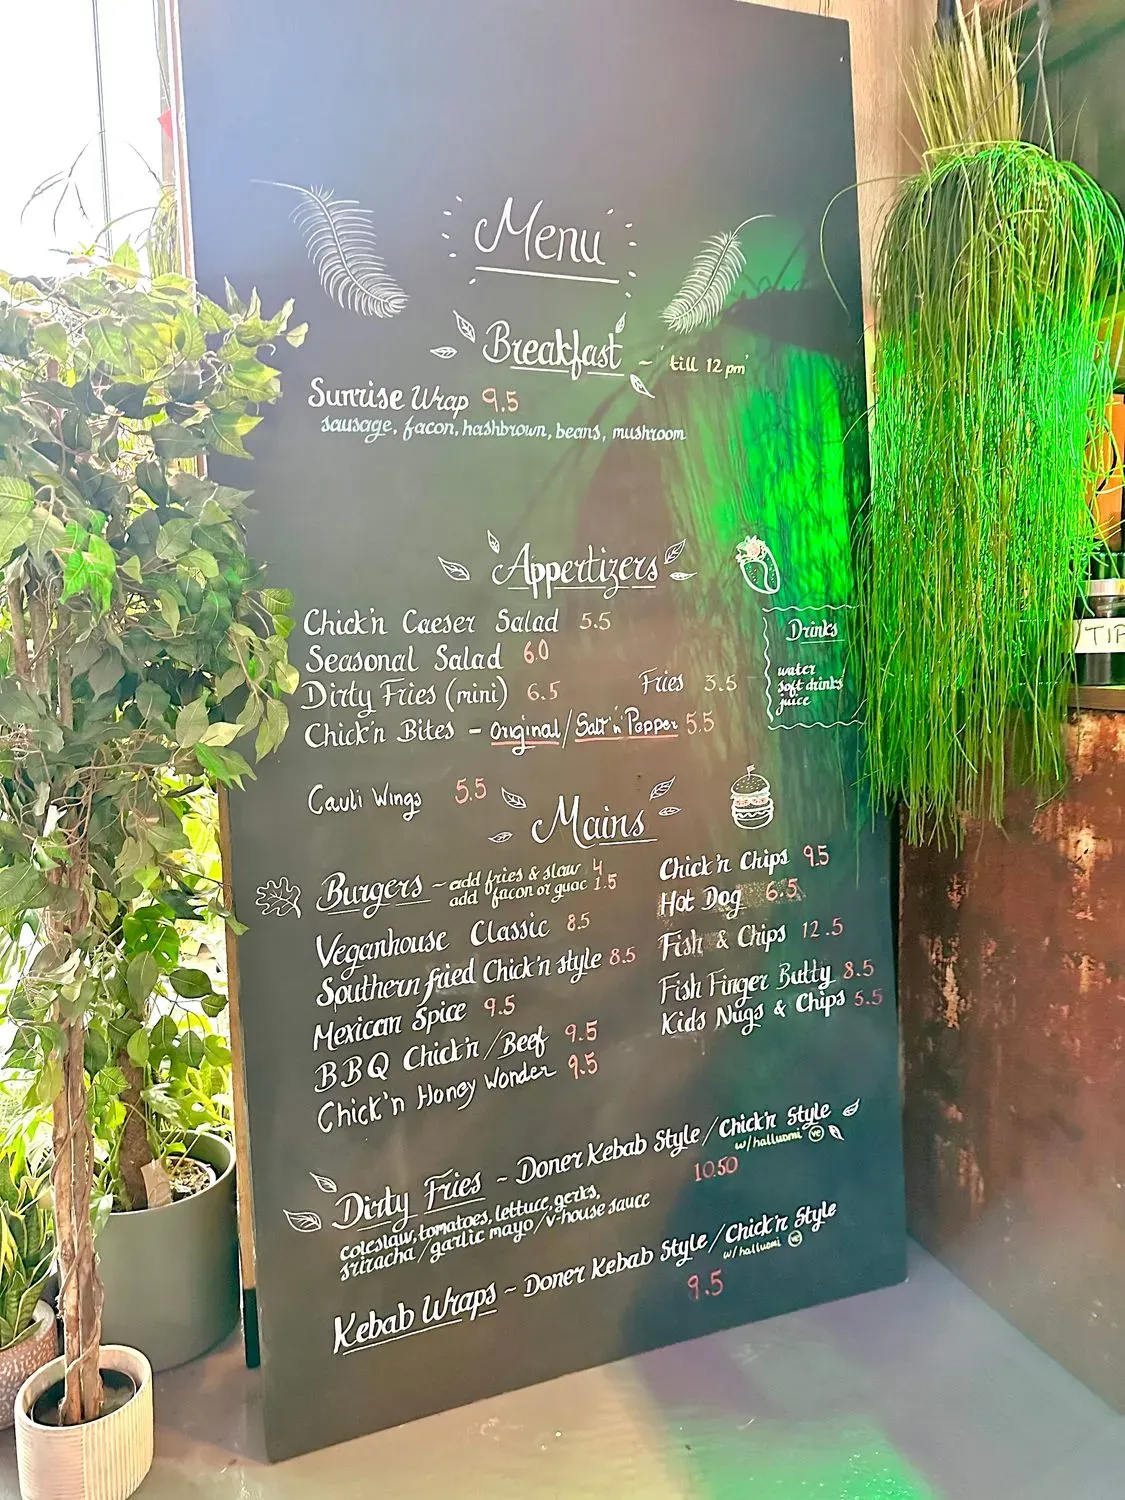 Menu
Breakfast ~ 'till 12pm'
Sunrise Wrap 9.5
sausage, facon, hashbrown, beans, mushroom
Appertizers
Chick'n Caeser Salad 5.5
Seasonal Salad 6.0
Dirty Fries (mini) 6.5
Fries 3.5
Chick'n Bites - Original/Salt 'n' Pepper 5.5
Cauli Wings 5.5
Drinks
water
soft drinks
juice
Mains
Burgers ~ add fries & slaw 4
add facon or guac 1.5
Veganhouse Classic 8.5
Southern fried Chick'n style 8.5
Mexican Spice 9.5
BBQ Chick'n/Beef 9.5
Chick'n Honey Wonder 9.5
Chick'n Chips 9.5
Hot Dog 6.5
Fish & Chips 12.5
Fish Finger Butty 8.5
Kids Nugs & Chips 5.5
Dirty Fries ~ Doner Kebab Style/Chick'n Style
w/halluomi ve
10.50
coleslaw, tomatoes, lettuce, gerks,
sriracha/garlic mayo/v-house sauce
Kebab Wraps ~ Doner Kebab Style/Chick'n Style
w/halluomi ve
9.5
TIP